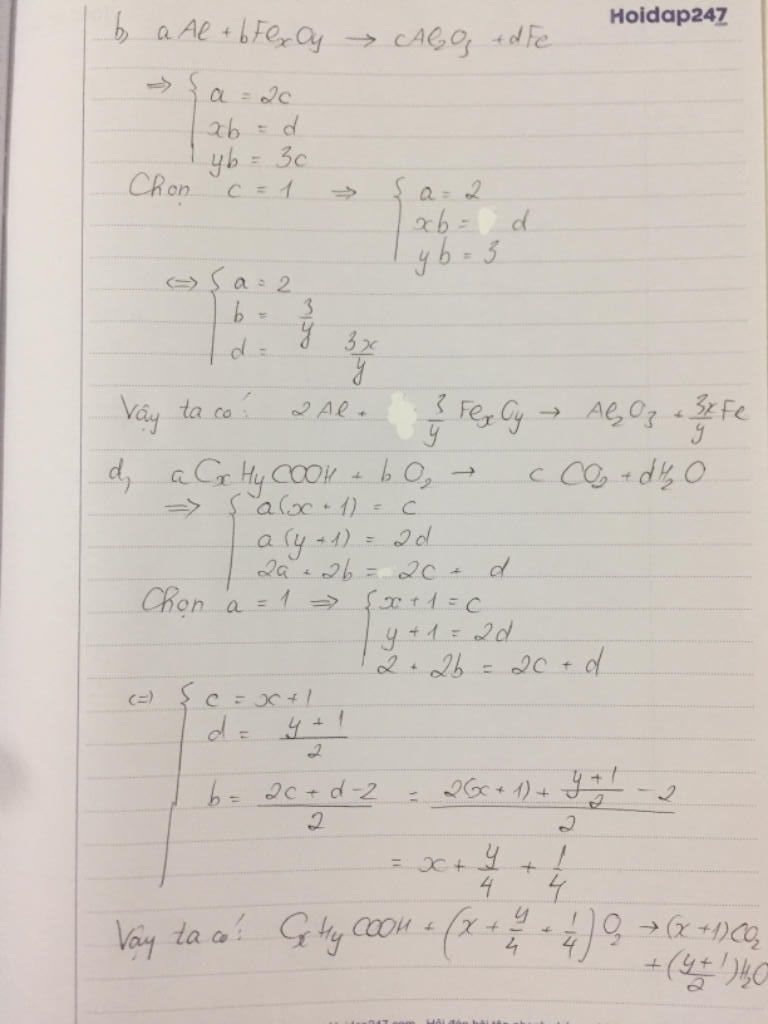 Hoidap247
b, aAl + bFexOy → cAl₂O₃ + dFe
⇒ { a = 2c
xb = d
yb = 3c
Chọn c = 1 ⇒ { a = 2
xb = d
yb = 3
⇔ { a = 2
b = 3/y
d = 3x/y
Vậy ta có: 2Al + 3/y FexOy → Al₂O₃ + 3x/y Fe
d, aCxHyCOOH + bO₂ → cCO₂ + dH₂O
⇒ { a(x + 1) = c
a(y + 1) = 2d
2a + 2b = 2c + d
Chọn a = 1 ⇒ { x + 1 = c
y + 1 = 2d
2 + 2b = 2c + d
(=) { c = x + 1
d = (y + 1)/2
b = (2c + d - 2)/2 = (2(x + 1) + (y + 1)/2 - 2)/2
= x + y/4 + 1/4
Vậy ta có: CxHyCOOH + (x + y/4 + 1/4)O₂ → (x + 1)CO₂
+ ((y + 1)/2)H₂O